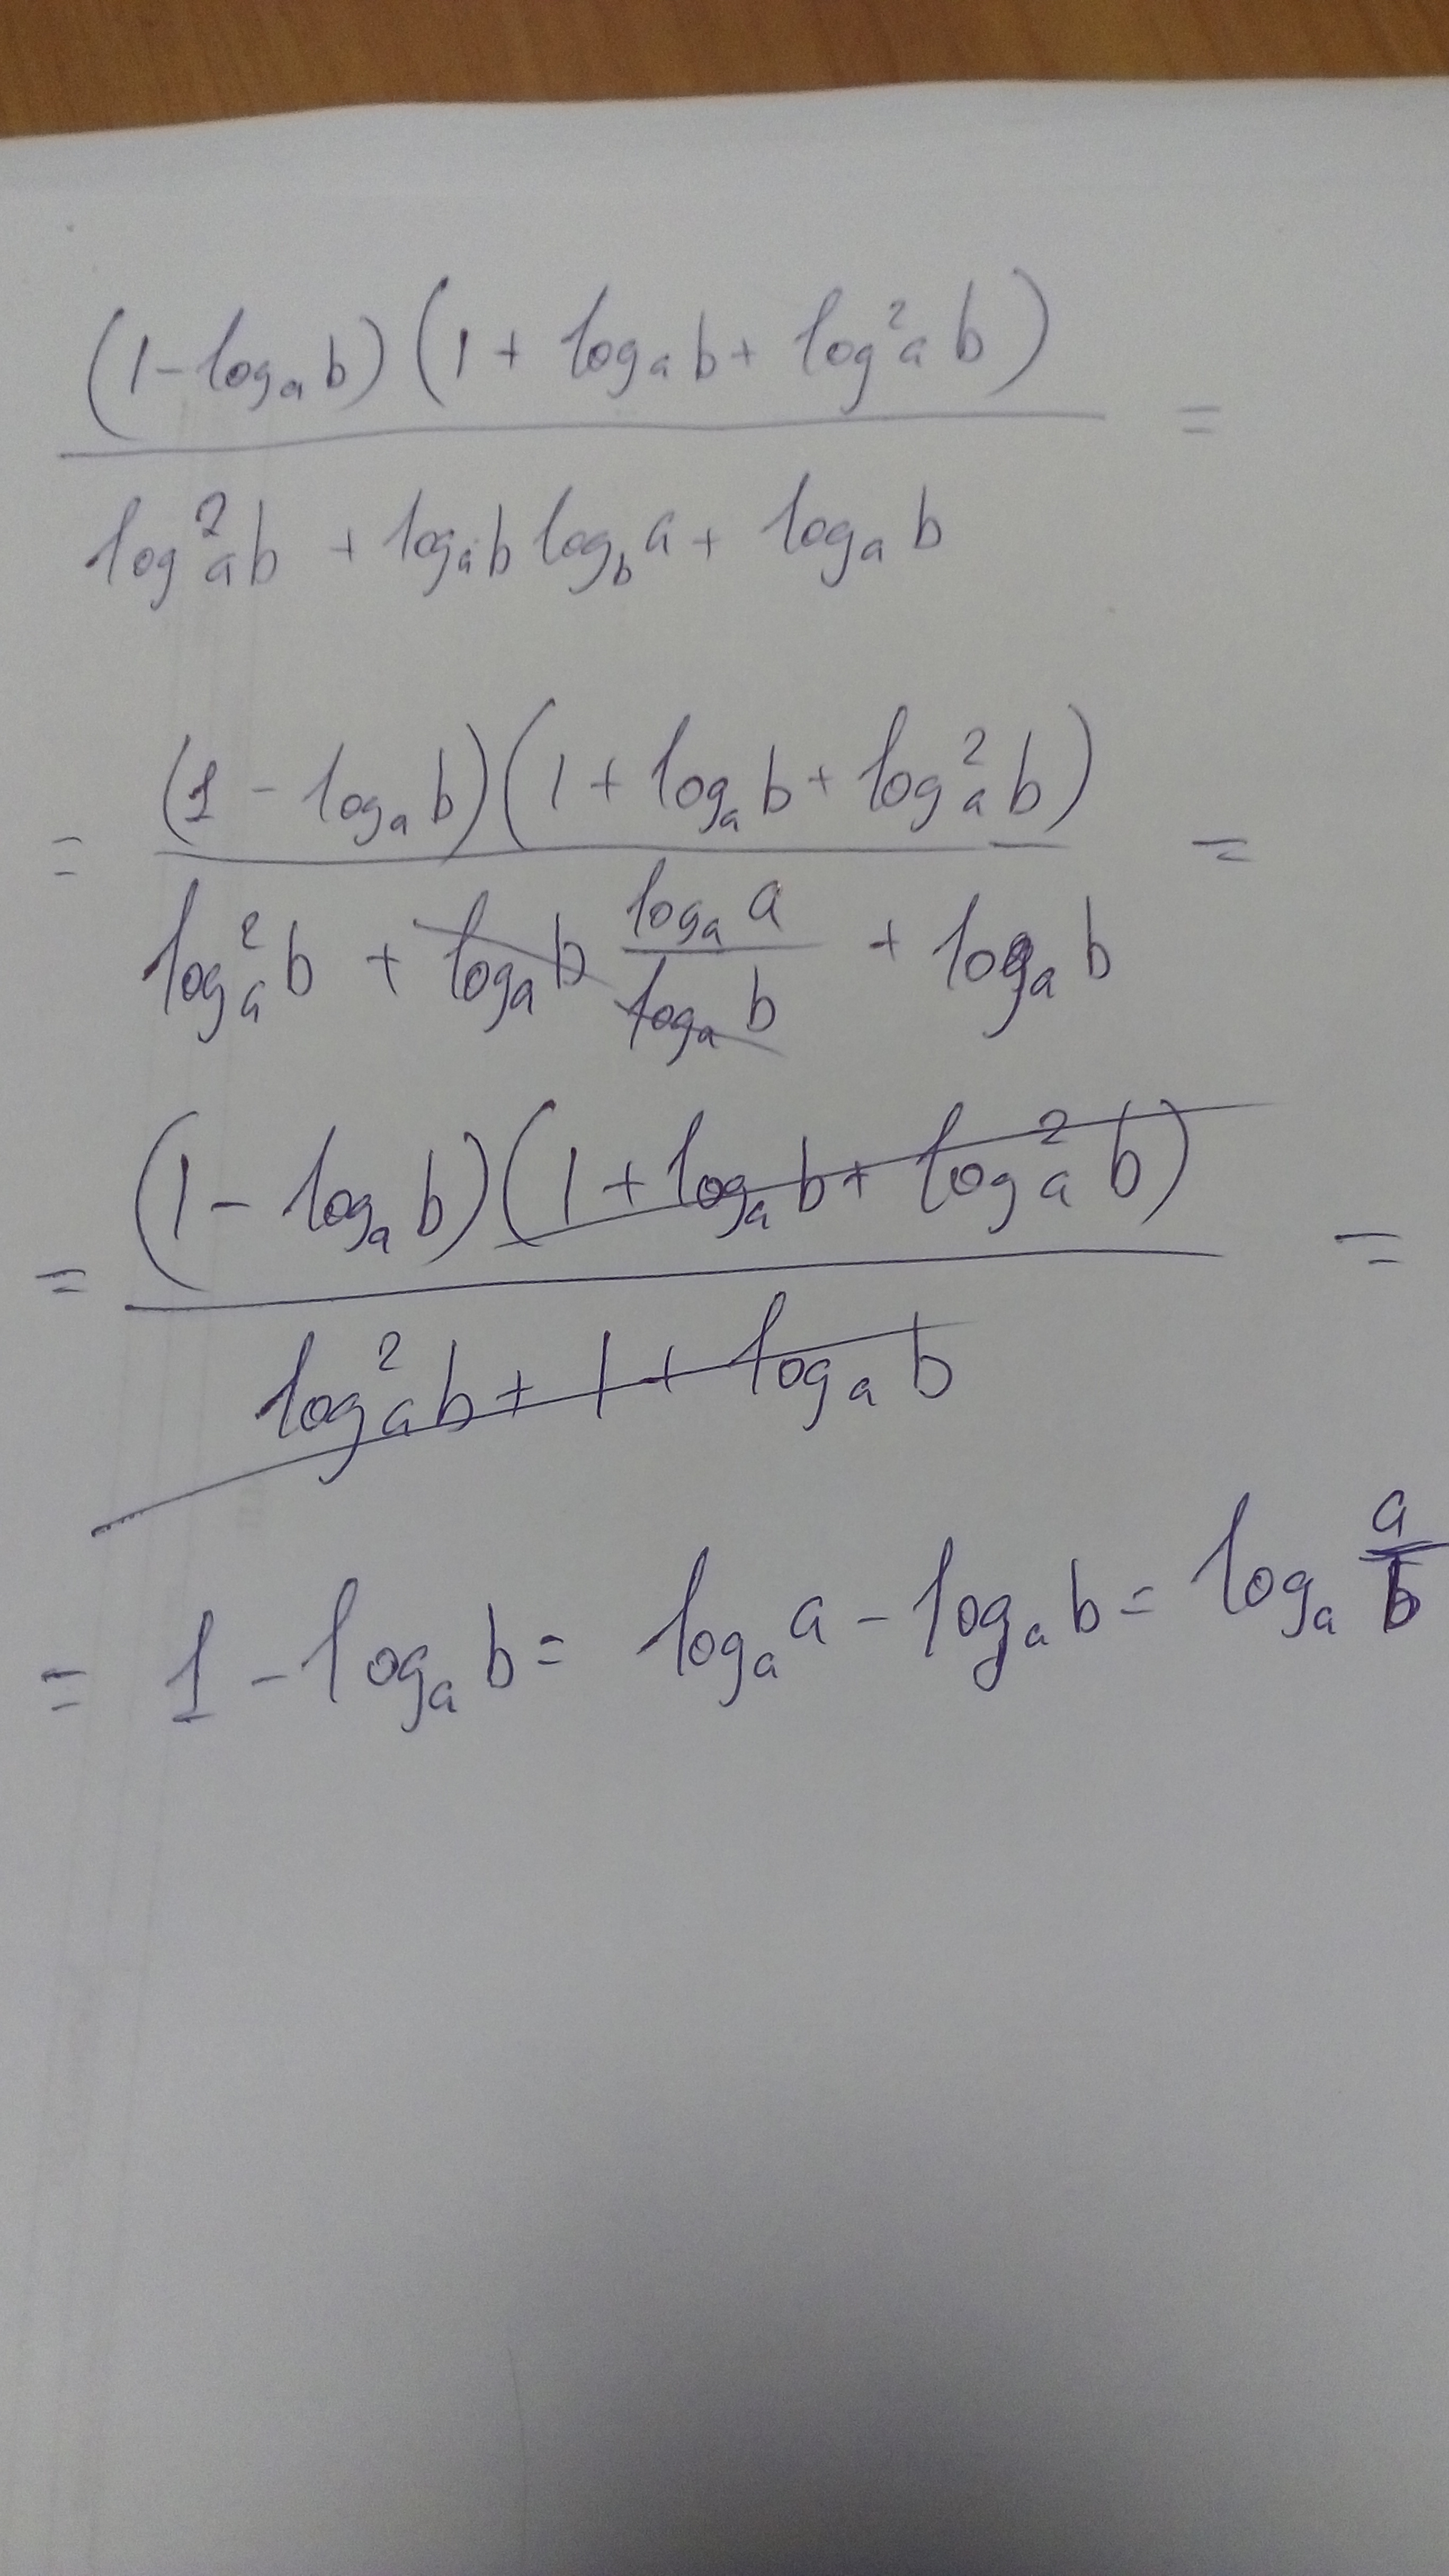 (1 - logₐ b)(1 + logₐ b + log²ₐ b) =
log²ₐ b + logₐ b log_b a + logₐ b
= (1 - logₐ b)(1 + logₐ b + log²ₐ b) =
log²ₐ b + logₐ b logₐ a / logₐ b + logₐ b
= (1 - logₐ b)(1 + logₐ b + log²ₐ b) =
log²ₐ b + 1 + logₐ b
= 1 - logₐ b = logₐ a - logₐ b = logₐ a/b